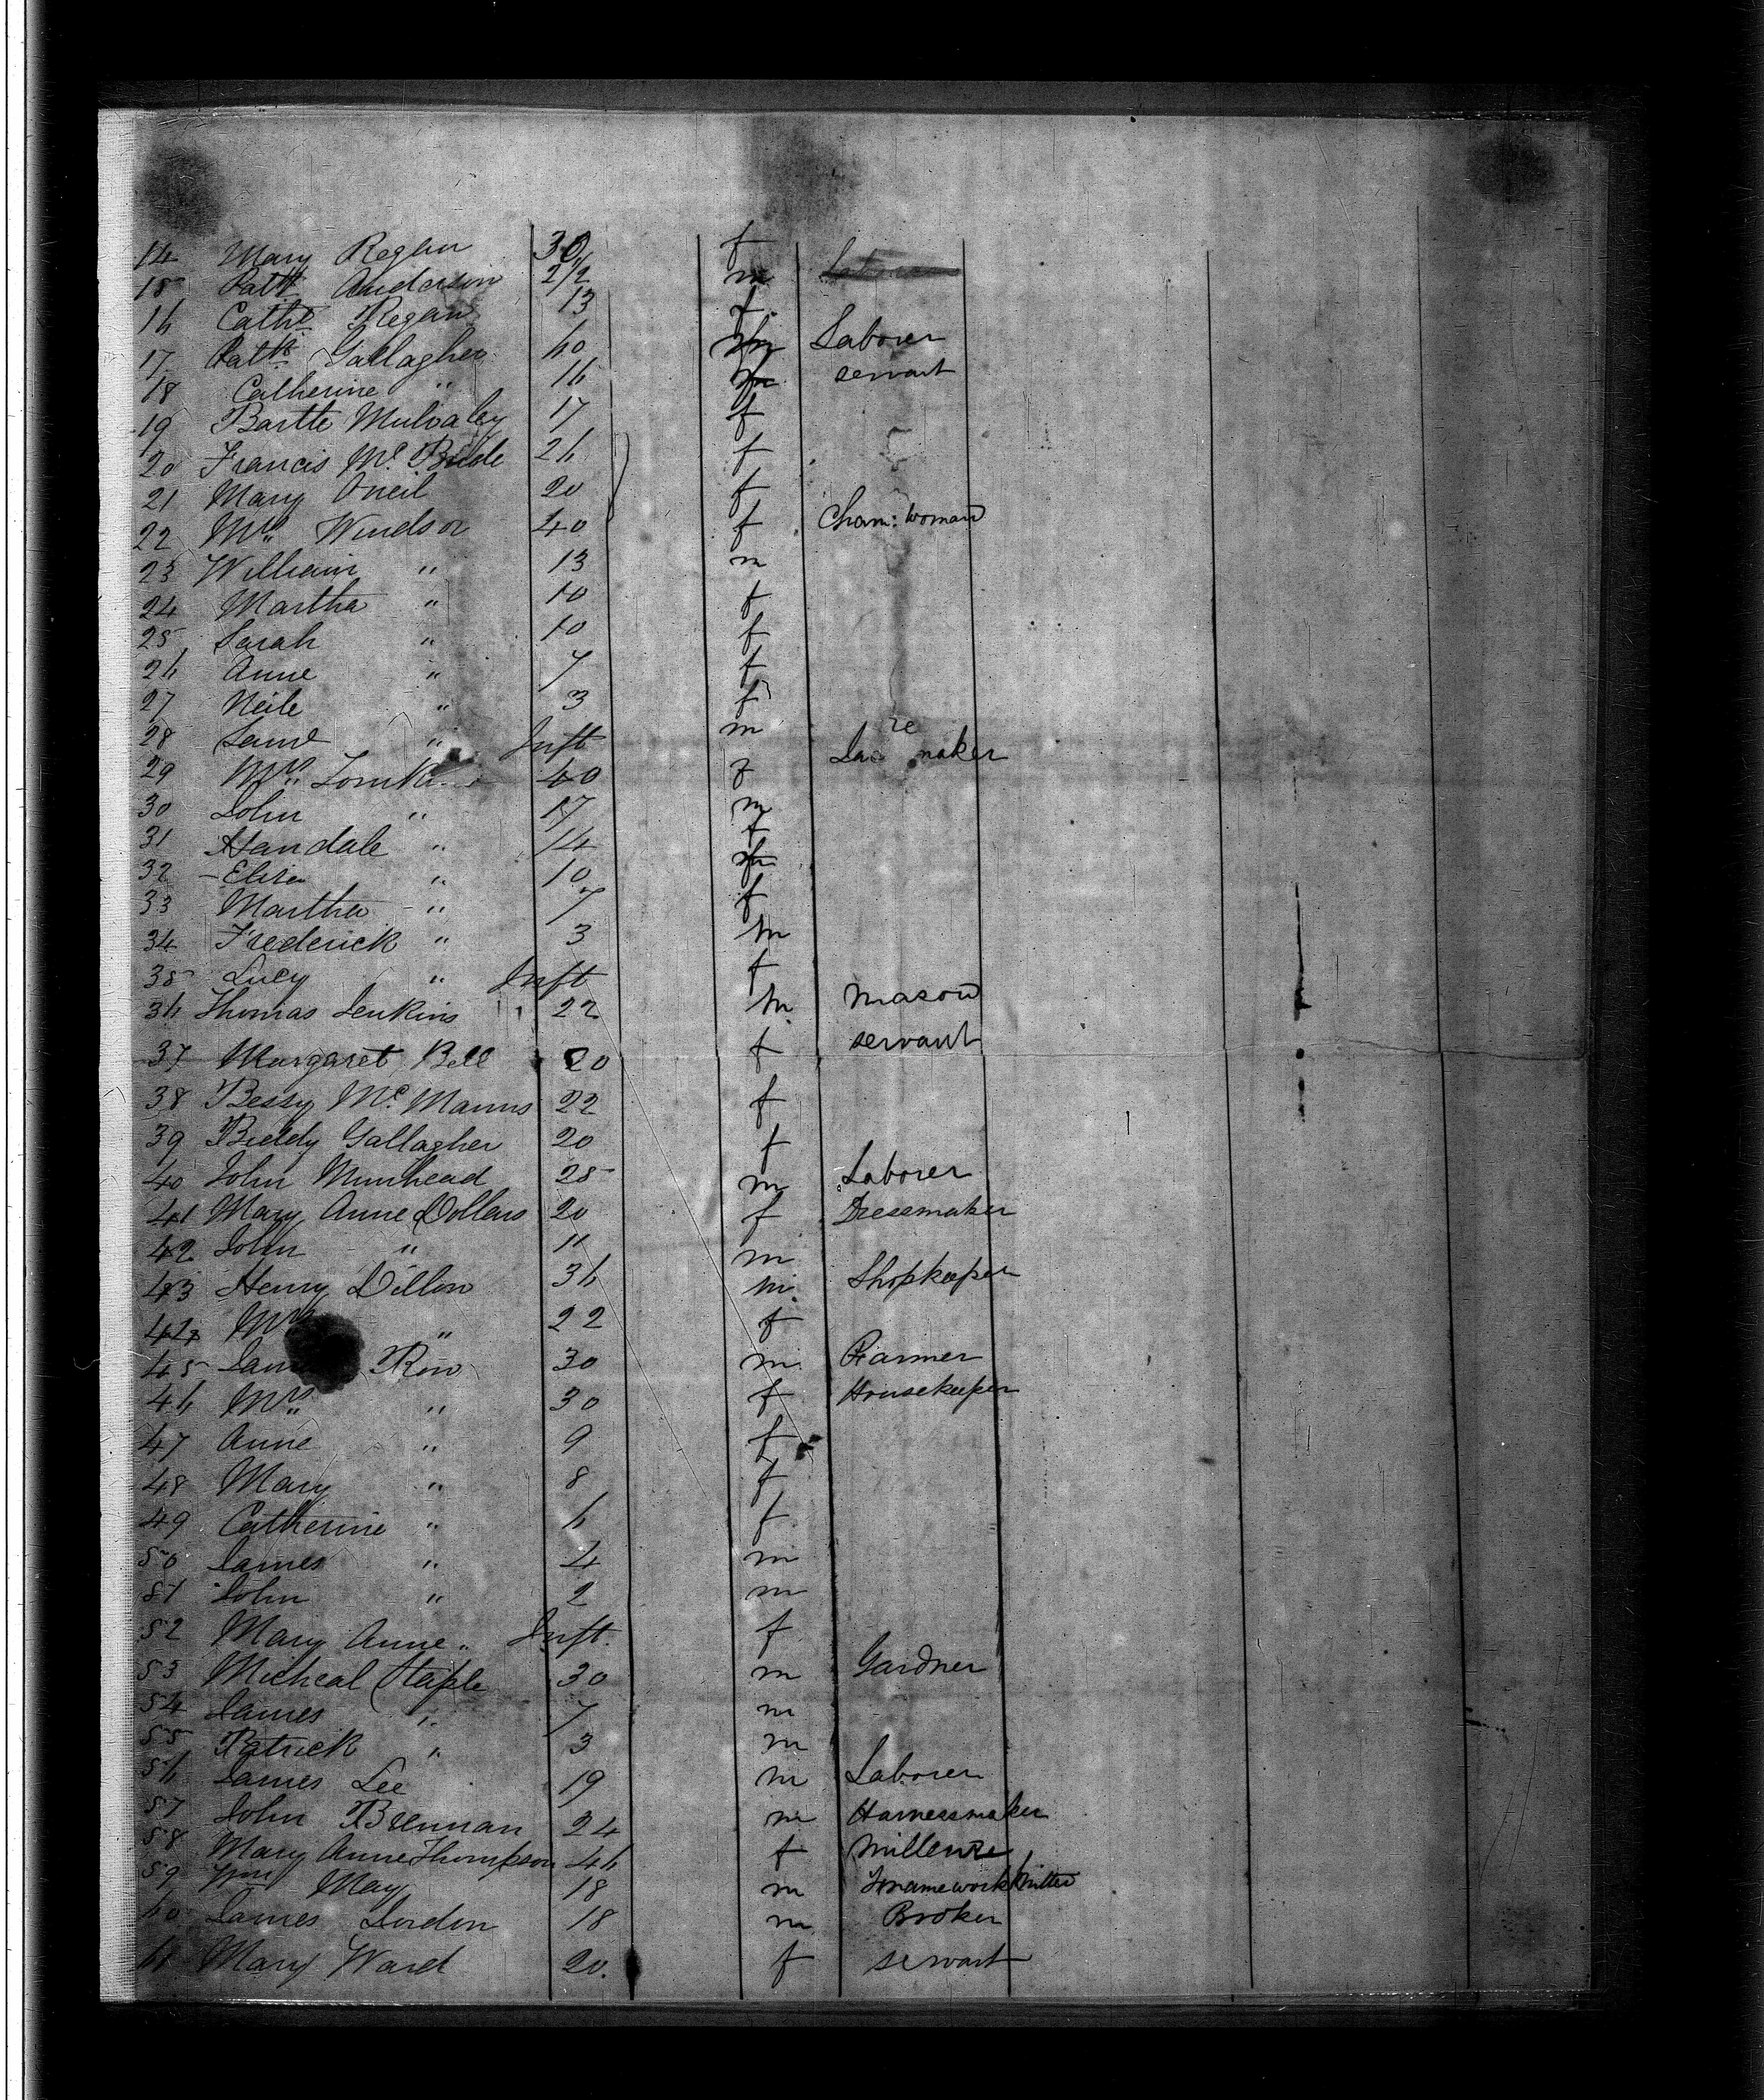 14 Mary Regan 30 f
15 Patk Anderson 22 m
16 Cathe Regan 13 f
17 Patk Gallagher 60 m Laborer
18 Catherine " 16 servant
19 Bartte Mulvaley 17 f
20 Francis Mc Bride 26 f
21 Mary Oneil 20 f
22 Mrs Windsor 40 f Cham: woman
23 William " 13 m
24 Martha " 10 f
25 Sarah " 10 f
26 Anne " 7 f
27 Neile " 3 f
28 " Inft m
29 Mrs 40 f Lace maker
30 John " 17 m
31 Handale " 14 f
32 Eliza " 10
33 Martha " 7 f
34 Frederick " 3 m
35 Lucy " Inft f
36 Thomas Jenkins 22 m mason
37 Margaret Bell 20 f servant
38 Bessy Mc Manus 22 f
39 Biddy Gallagher 20 f
40 John Muirhead 25 m Laborer
41 Mary Anne Dollars 20 f Dressmaker
42 John " 11 m
43 Henry Dillon 36 m Shopkeeper
44 Mrs " 22 f
45 James Row 30 m Farmer
46 Mrs " 30 f Housekeeper
47 Anne " 9 f
48 Mary " 8 f
49 Catherine " 6 f
50 James " 4 m
51 John " 2 m
52 Mary Anne " Inft. f
53 Micheal Staple 30 m Gardner
54 James " 7 m
55 Patrick " 3 m
56 James Lee 19 m Laborer
57 John Brennan 24 m Harnessmaker
58 Mary Anne Thompson 46 f
59 Wm May 18 m Framework Knitter
60 James Lordon 18 m Broker
61 Mary Ward 20. f servant